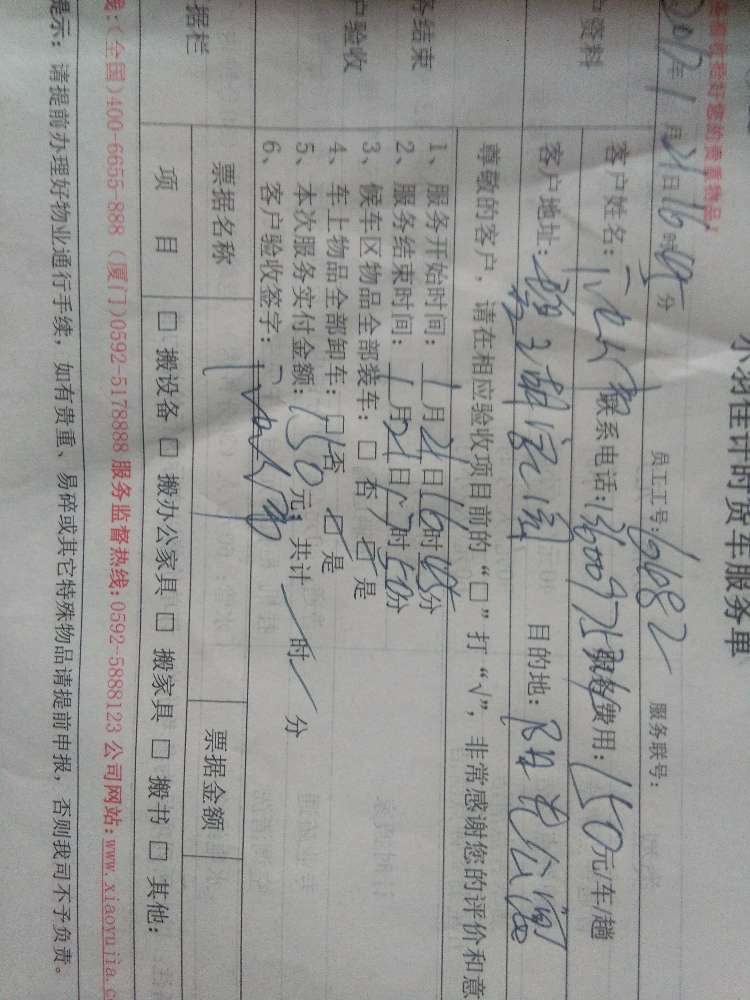 小羽佳计时货车服务单
检好您的贵重物品！
2017年1月21日16时45分 员工工号: 6682 服务联号:
户资料
客户姓名: 联系电话: 服务费用: 150元/车/趟
客户地址: 目的地: 阳光公寓
尊敬的客户，请在相应验收项目前的“□”打“√”，非常感谢您的评价和意
务结束
户验收
1、服务开始时间: 1月21日16时45分
2、服务结束时间: 1月21日17时50分
3、候车区物品全部装车: □ 否 ☑ 是
4、车上物品全部卸车: □ 否 ☑ 是
5、本次服务实付金额: 150元; 共计 时 分
6、客户验收签字:
据栏
票据名称 票据金额
项 目 □ 搬设备 □ 搬办公家具 □ 搬家具 □ 搬书 □ 其他:
线:(全国)400-6655-888 (厦门)0592-5178888 服务监督热线:0592-5888123 公司网站:www.xiaoyujia.c
提示: 请提前办理好物业通行手续，如有贵重、易碎或其它特殊物品请提前申报，否则我司不予负责。